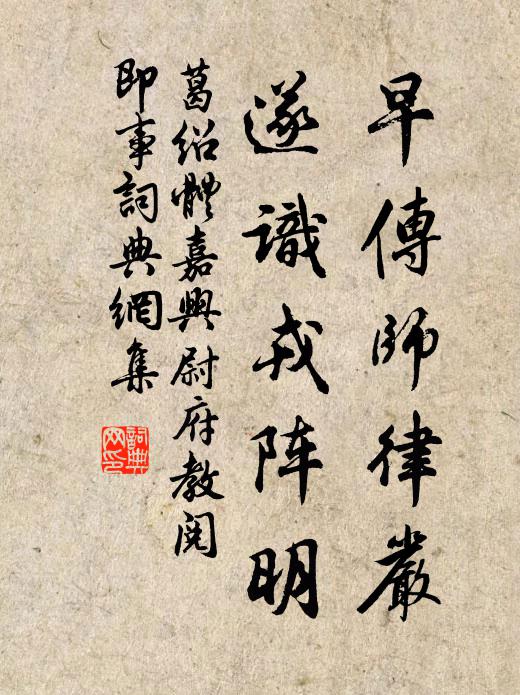 早傳師律嚴
遂識戎阵明
葛绍體嘉興尉府教阅
即事詞典網集
詞典
网印